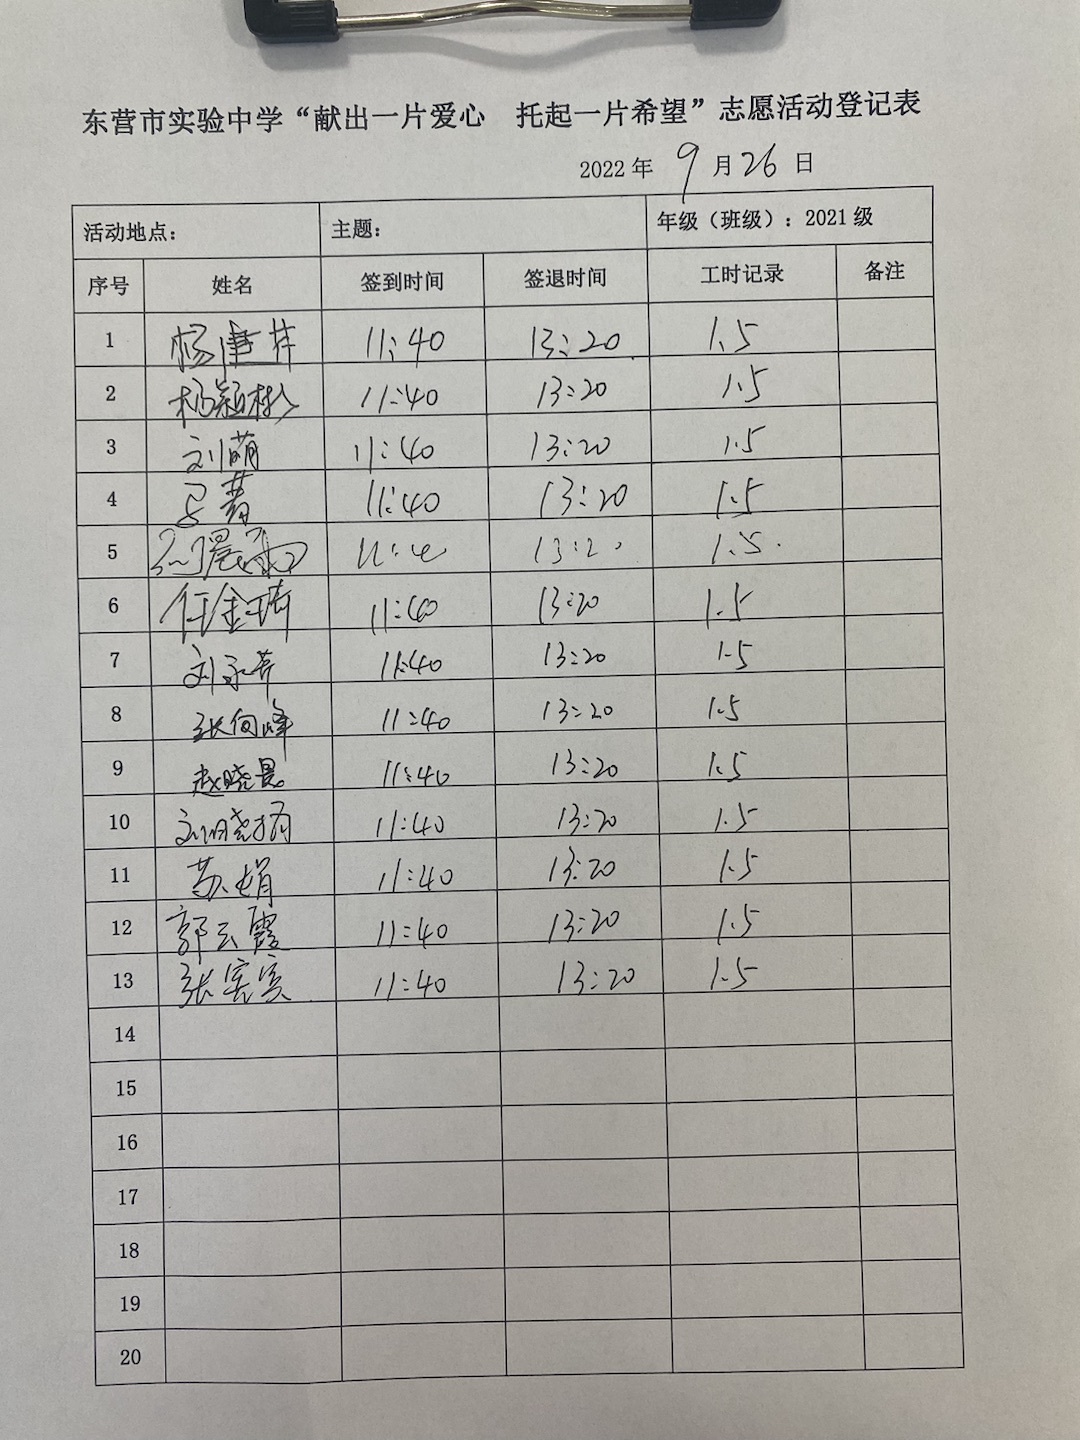 东营市实验中学“献出一片爱心 托起一片希望”志愿活动登记表
2022 年 9 月 26 日
活动地点： 主题： 年级（班级）：2021 级
序号 姓名 签到时间 签退时间 工时记录 备注
1 11:40 13:20 1.5
2 11:40 13:20 1.5
3 刘萌 11:40 13:20 1.5
4 11:40 13:20 1.5
5 13:20 1.5
6 任金琦 11:40 13:20 1.5
7 11:40 13:20 1.5
8 张向峰 11:40 13:20 1.5
9 赵晓昙 11:40 13:20 1.5
10 11:40 13:20 1.5
11 苏娟 11:40 13:20 1.5
12 郭云霞 11:40 13:20 1.5
13 11:40 13:20 1.5
14
15
16
17
18
19
20